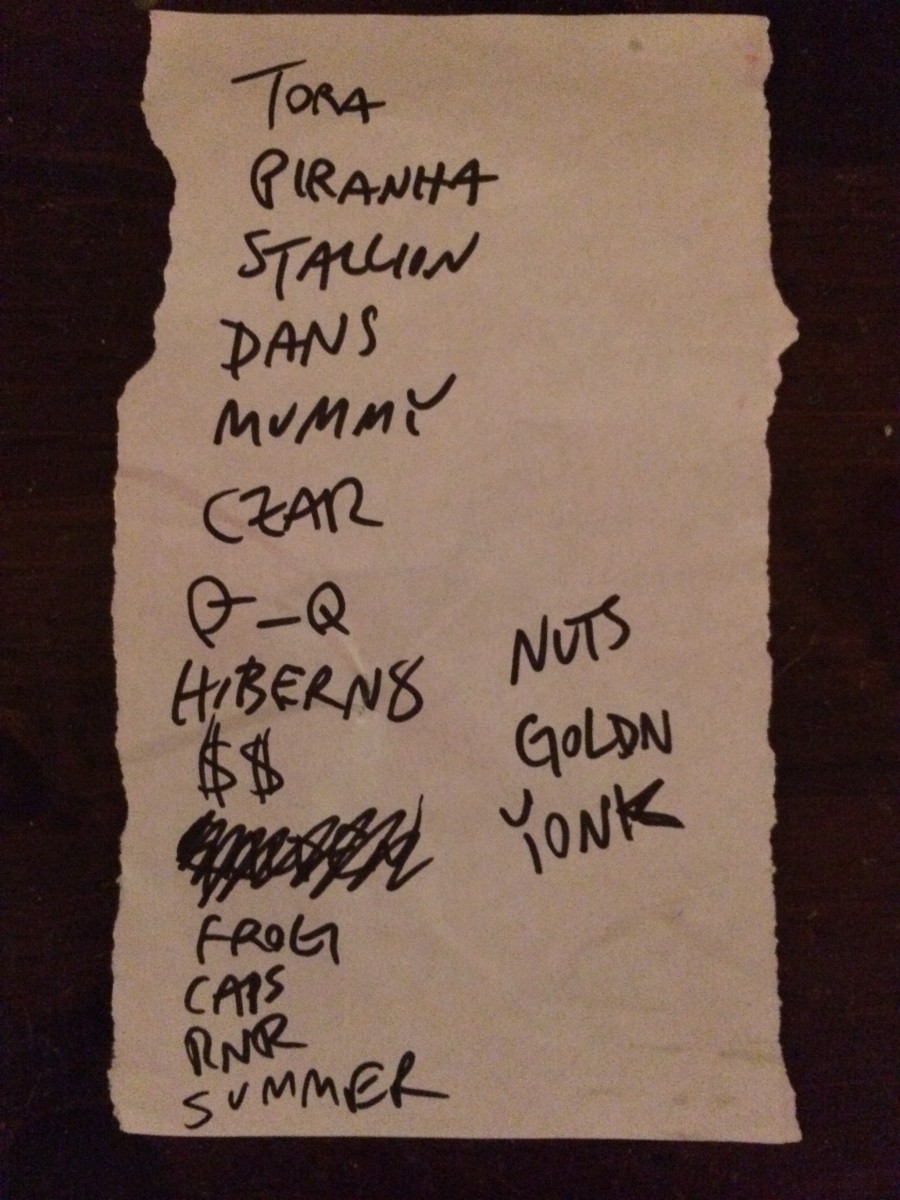 TORA
PIRANHA
STALLION
DANS
MUMMY
CZAR
P-_Q
HIBERN8
$$
FROG
CAPS
RNR
SUMMER
NUTS
GOLDN
YONK